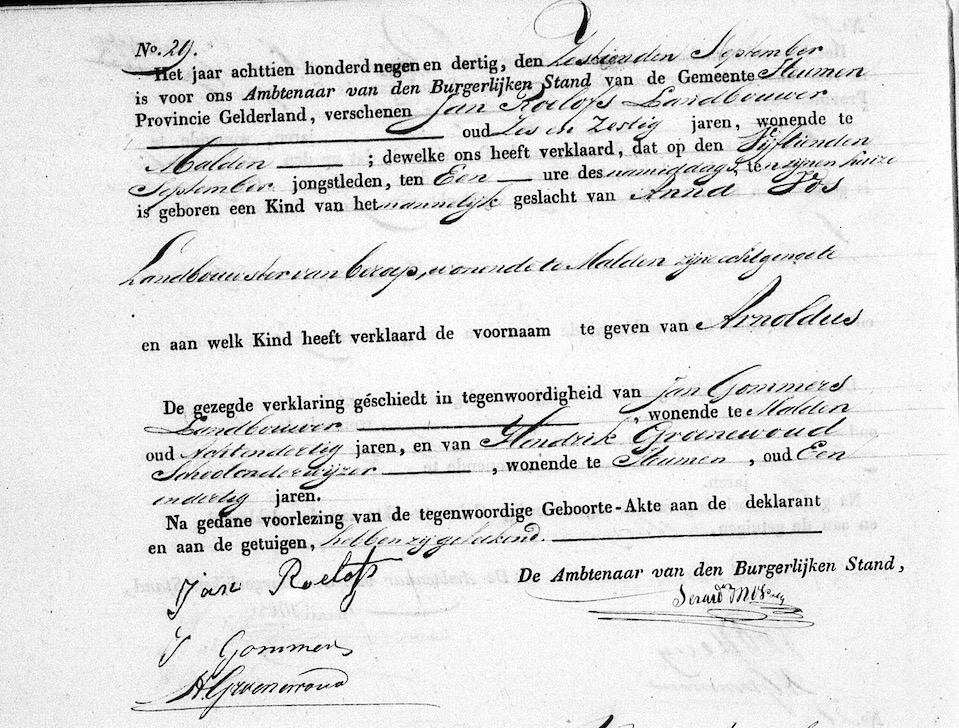 No. 29.
Het jaar achttien honderd negen en dertig, den Zestienden September
is voor ons Ambtenaar van den Burgerlijken Stand van de Gemeente Heumen
Provincie Gelderland, verschenen Jan Roelofs Landbouwer
oud Zes en Zestig jaren, wonende te
Malden ; dewelke ons heeft verklaard, dat op den Vyftienden
September jongstleden, ten Een ure des namiddags, te zynen huize
is geboren een Kind van het mannelijk geslacht van Anna Vos
Landbouwster van beroep, wonende te Malden zyne echtgenote
en aan welk Kind heeft verklaard de voornaam te geven van Arnoldus
De gezegde verklaring geschiedt in tegenwoordigheid van Jan Gommers
Landbouwer , wonende te Malden
oud Achtendertig jaren, en van Hendrik Groenewoud
Schoolonderwijzer , wonende te Heumen , oud Een
endertig jaren.
Na gedane voorlezing van de tegenwoordige Geboorte-Akte aan de deklarant
en aan de getuigen, hebben zy getekend.
De Ambtenaar van den Burgerlijken Stand,
Jan Roelofs
J Gommers
H. Groenewoud